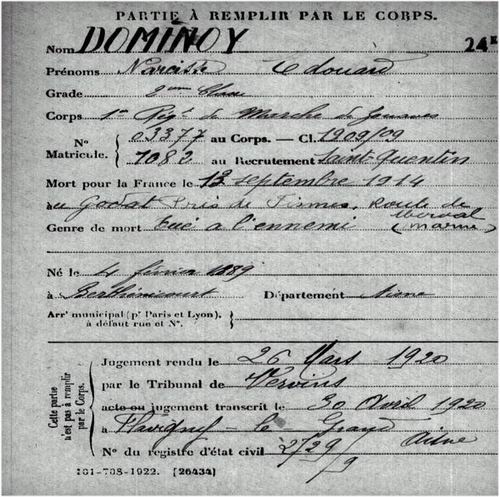 PARTIE À REMPLIR PAR LE CORPS.
Nom DOMINOY 24E
Prénoms Narcisse Edouard
Grade 2ème Classe
Corps 1er Régt de Marche de Zouaves
N° 03377 au Corps. — Cl. 1909/09
Matricule. 7082 au Recrutement Saint Quentin
Mort pour la France le 13 septembre 1914
au Godat près de Fismes, Route de Merval
Genre de mort tué à l'ennemi (Marne)
Né le 4 février 1889
à Berthenicourt Département Aisne
Arrt municipal (pr Paris et Lyon),
à défaut rue et N°.
Cette partie
n'est pas à remplir
par le Corps.
Jugement rendu le 26 Mars 1920
par le Tribunal de Vervins
acte ou jugement transcrit le 30 Avril 1920
à Flavigny-le-Grand Aisne
N° du registre d'état civil 2729/9
101-708-1922. [26434]